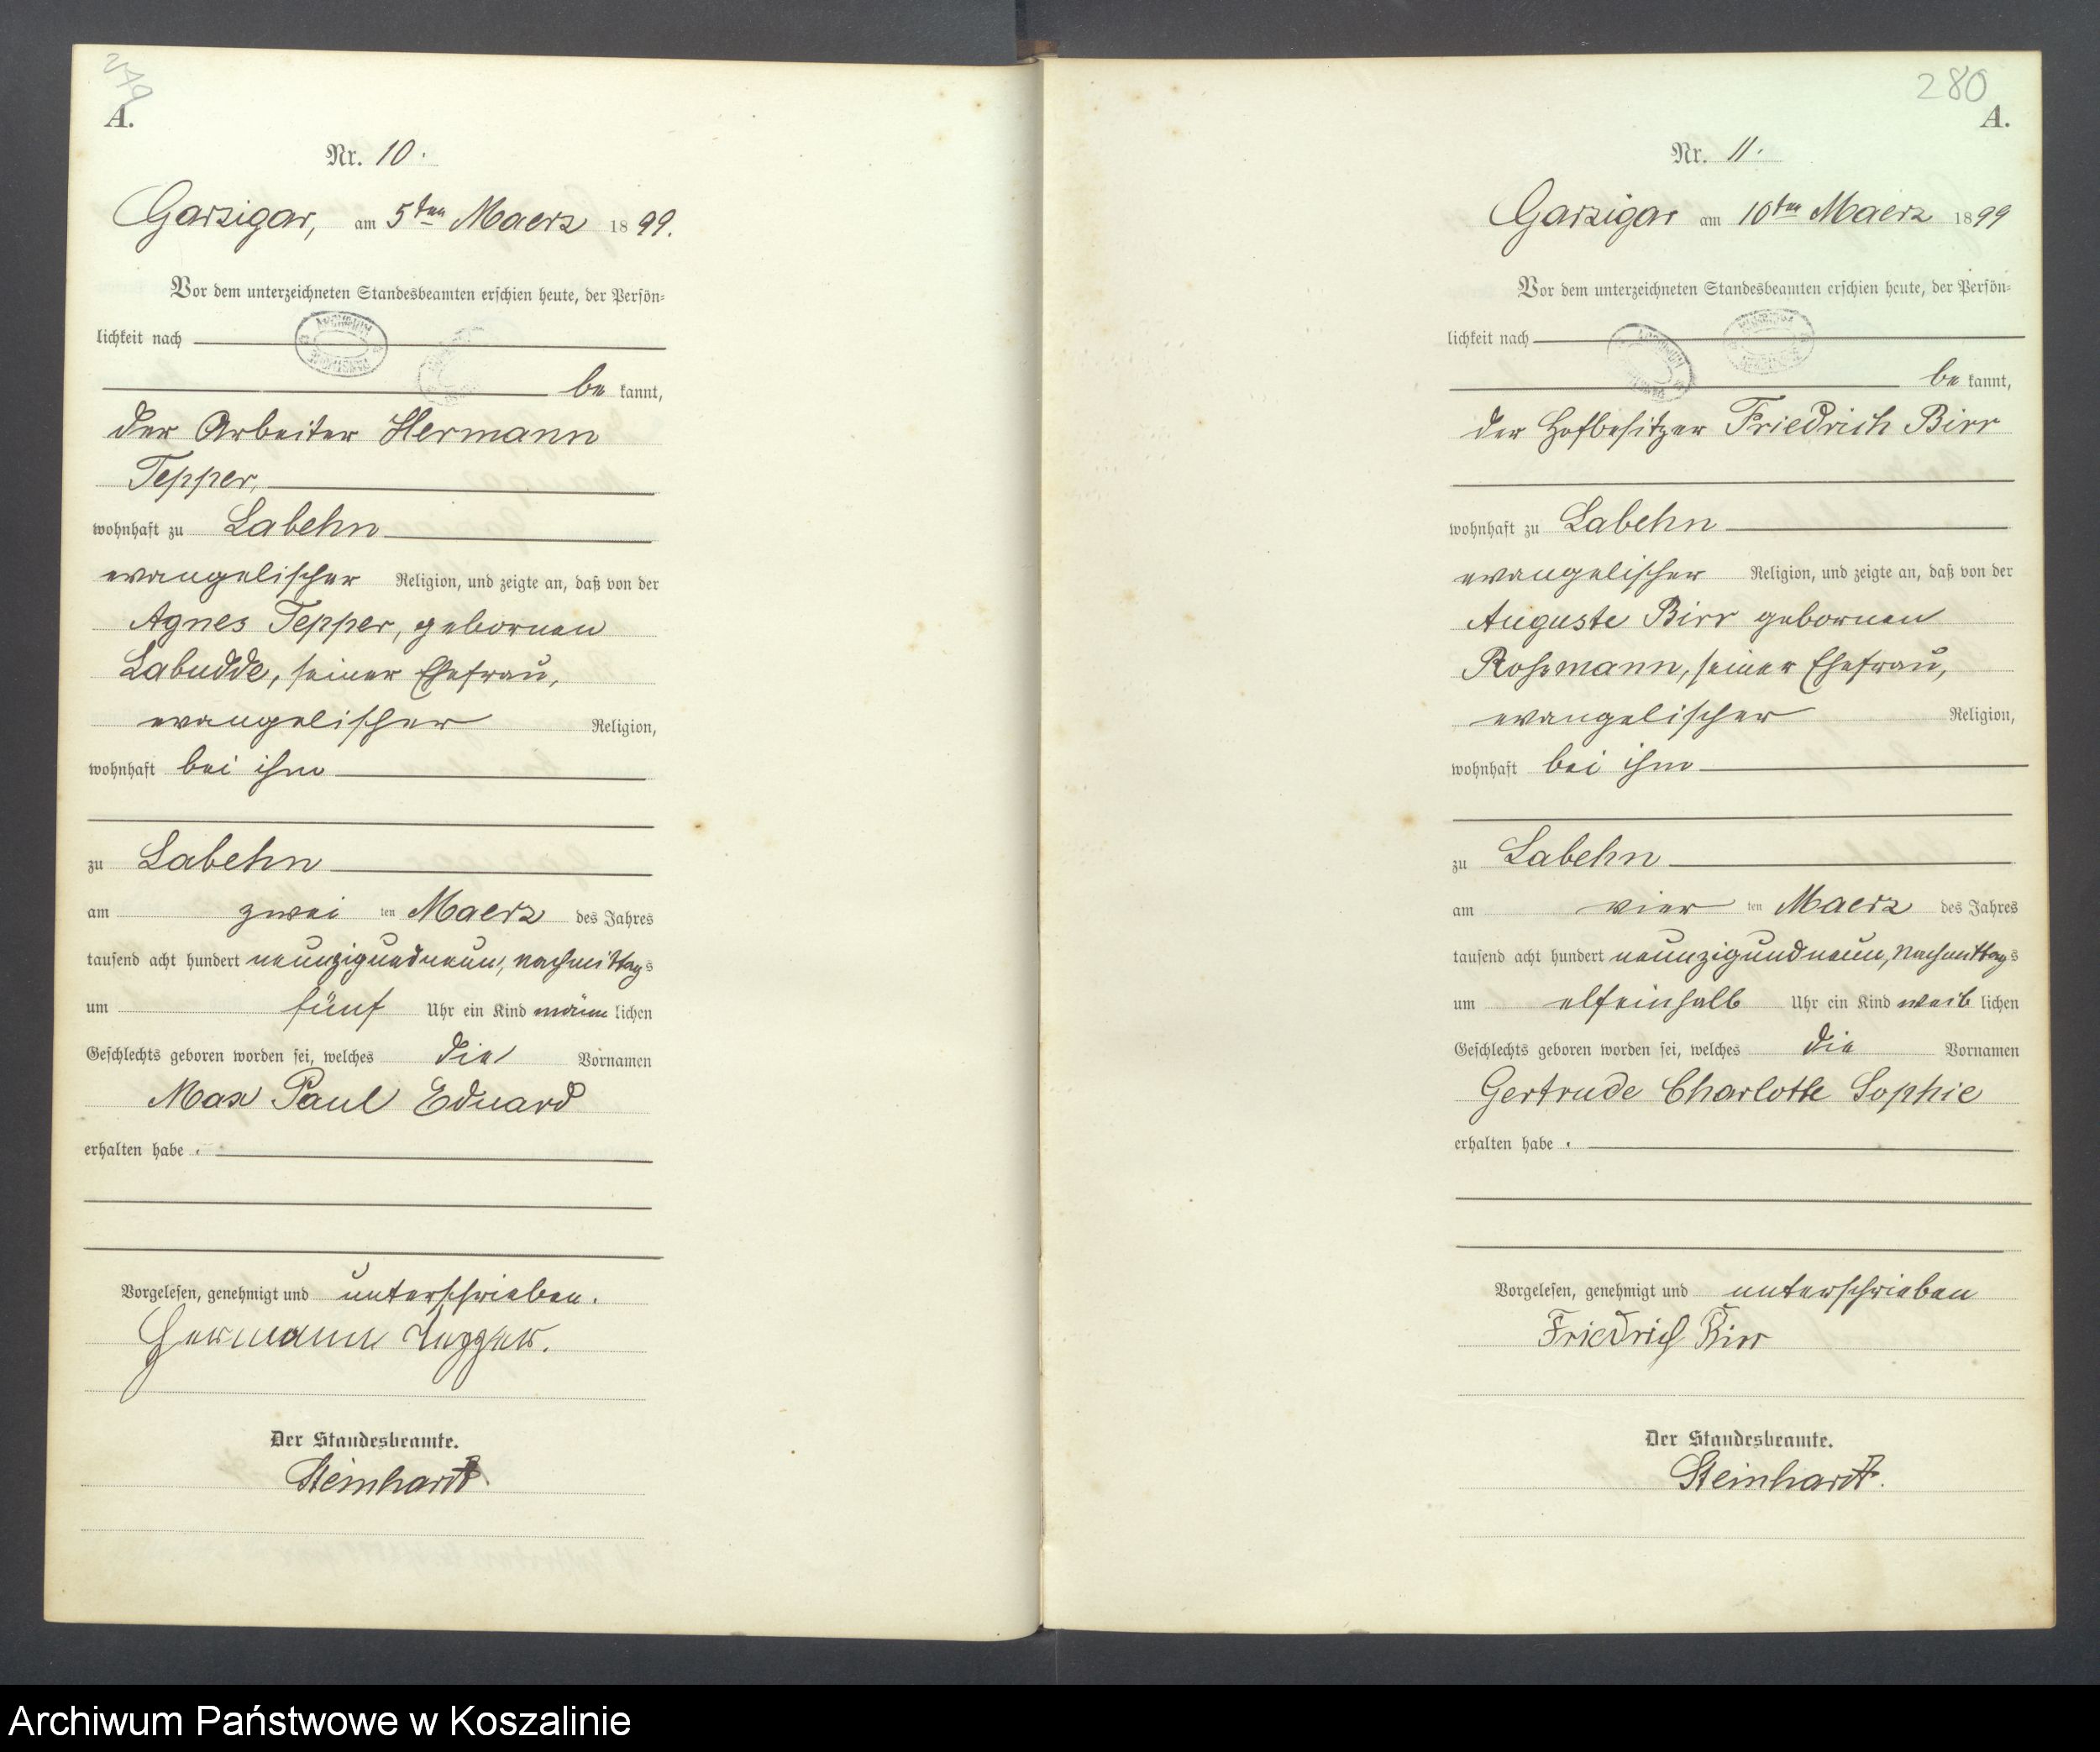 279
A.
Nr. 10.
Garzigar, am 5ten Maerz 1899.
Vor dem unterzeichneten Standesbeamten erschien heute, der Persön-
lichkeit nach
be kannt,
der Arbeiter Hermann
Tepper,
wohnhaft zu Labehn
evangelischer Religion, und zeigte an, daß von der
Agnes Tepper, gebornen
Labudde, seiner Ehefrau,
evangelischer Religion,
wohnhaft bei ihm
zu Labehn
am zwei ten Maerz des Jahres
tausend acht hundert neunzigundneun, nachmittags
um fünf Uhr ein Kind männlichen
Geschlechts geboren worden sei, welches die Vornamen
Max Paul Eduard
erhalten habe.
Vorgelesen, genehmigt und unterschrieben.
Hermann Tepper.
Der Standesbeamte.
Steinhardt
280
A.
Nr. 11.
Garzigar am 10ten Maerz 1899
Vor dem unterzeichneten Standesbeamten erschien heute, der Persön-
lichkeit nach
be kannt,
der Hofbesitzer Friedrich Birr
wohnhaft zu Labehn
evangelischer Religion, und zeigte an, daß von der
Auguste Birr gebornen
Rossmann, seiner Ehefrau,
evangelischer Religion,
wohnhaft bei ihm
zu Labehn
am vier ten Maerz des Jahres
tausend acht hundert neunzigundneun, Nachmittags
um elfeinhalb Uhr ein Kind weiblichen
Geschlechts geboren worden sei, welches die Vornamen
Gertrude Charlotte Sophie
erhalten habe.
Vorgelesen, genehmigt und unterschrieben
Friedrich Birr
Der Standesbeamte.
Steinhardt.
Archiwum Państwowe w Koszalinie